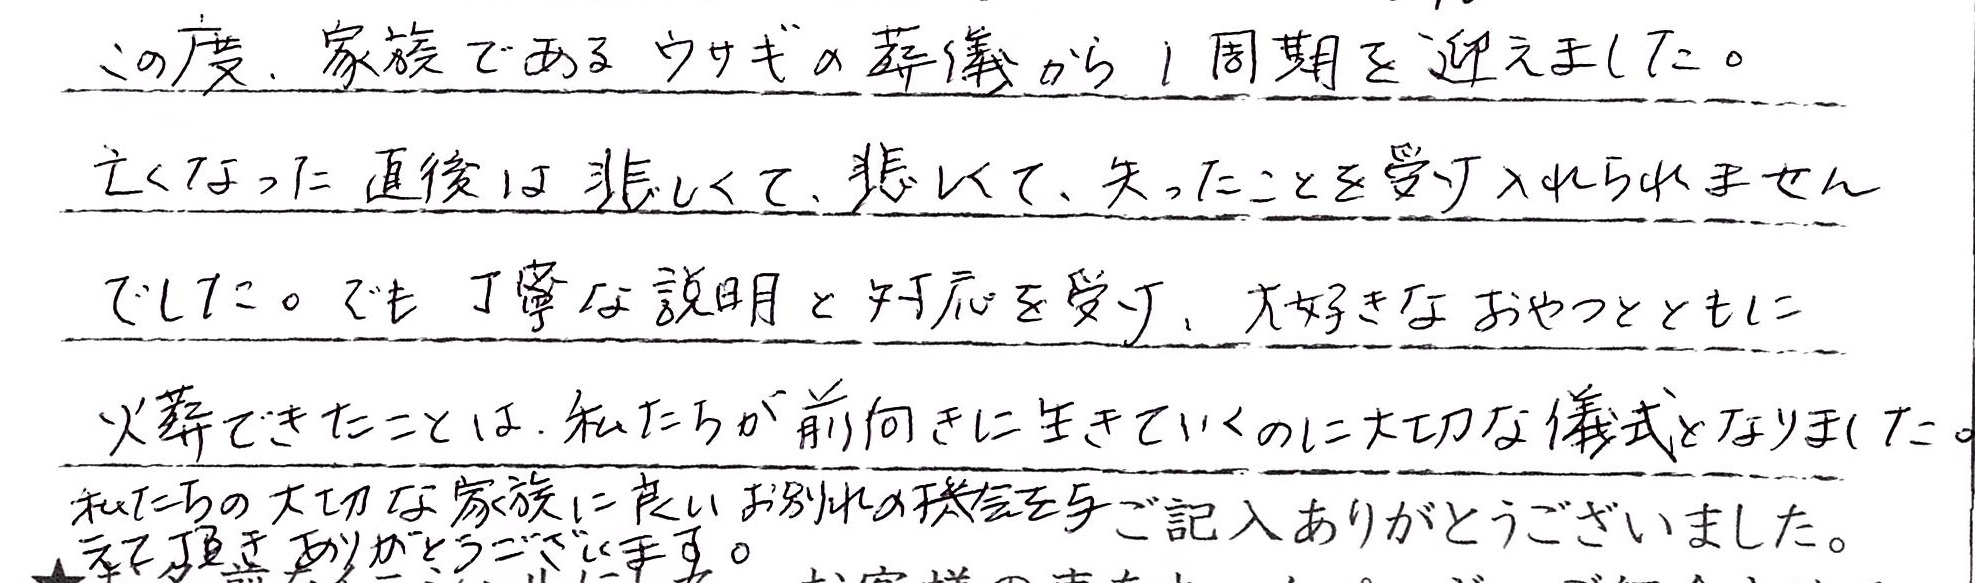 この度、家族であるウサギの葬儀から1周期を迎えました。
亡くなった直後は悲しくて、悲しくて、失ったことを受け入れられません
でした。でも丁寧な説明と対応を受け、大好きなおやつとともに
火葬できたことは、私たちが前向きに生きていくのに大切な儀式となりました。
私たちの大切な家族に良いお別れの機会を与
えて頂きありがとうございます。
ご記入ありがとうございました。
★